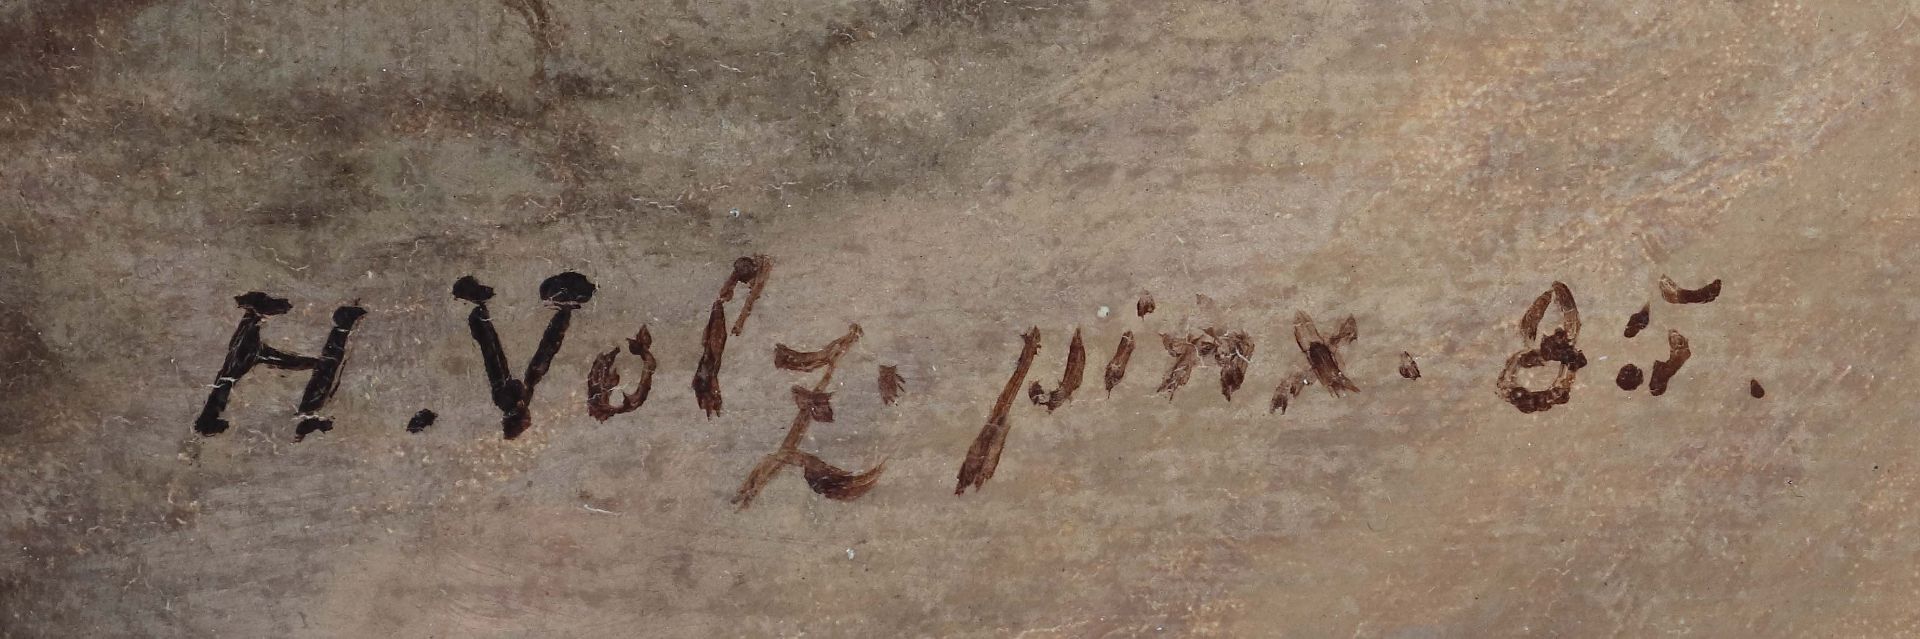 H. Volz. pinx. 85.